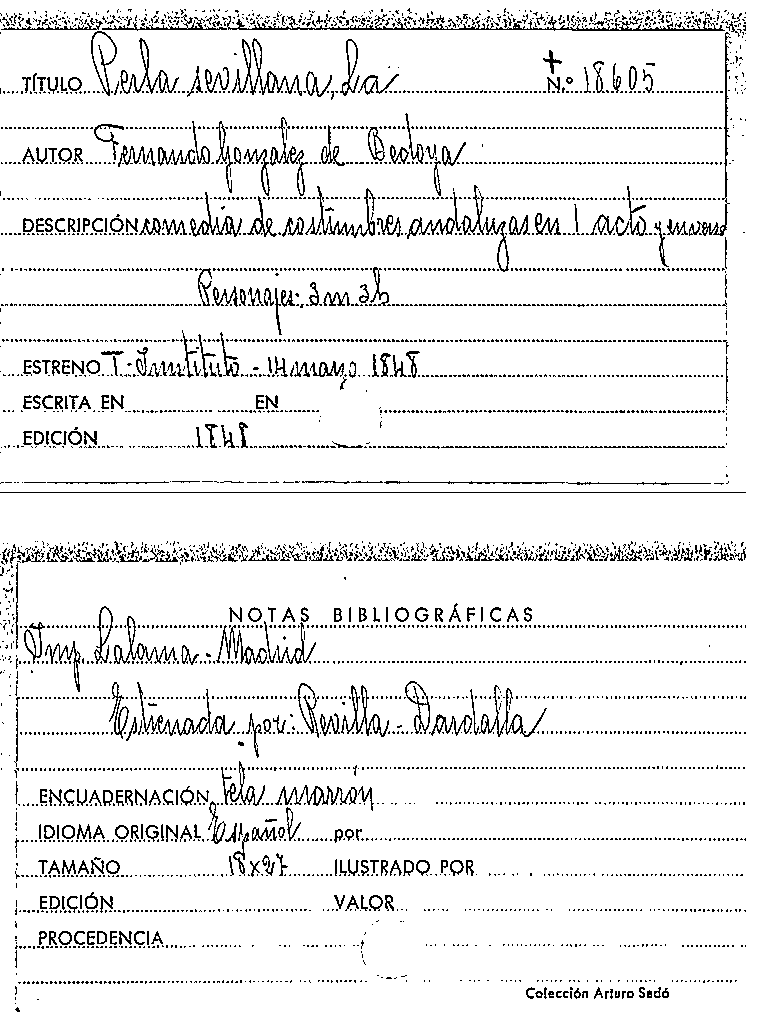 TÍTULO Perla sevillana, La N.º 18605
AUTOR Fernando Gonzalez de Bedoya
DESCRIPCIÓN comedia de costumbres andaluzas en 1 acto y en verso
Personajes: 3m 3h
ESTRENO T. Instituto - 14 marzo 1848
ESCRITA EN EN
EDICIÓN 1848
NOTAS BIBLIOGRÁFICAS
Imp. Lalama - Madrid
Estrenada por: Revilla - Dardalla
ENCUADERNACIÓN tela marrón
IDIOMA ORIGINAL Español por
TAMAÑO 18x27 ILUSTRADO POR
EDICIÓN VALOR
PROCEDENCIA
Colección Arturo Sedó